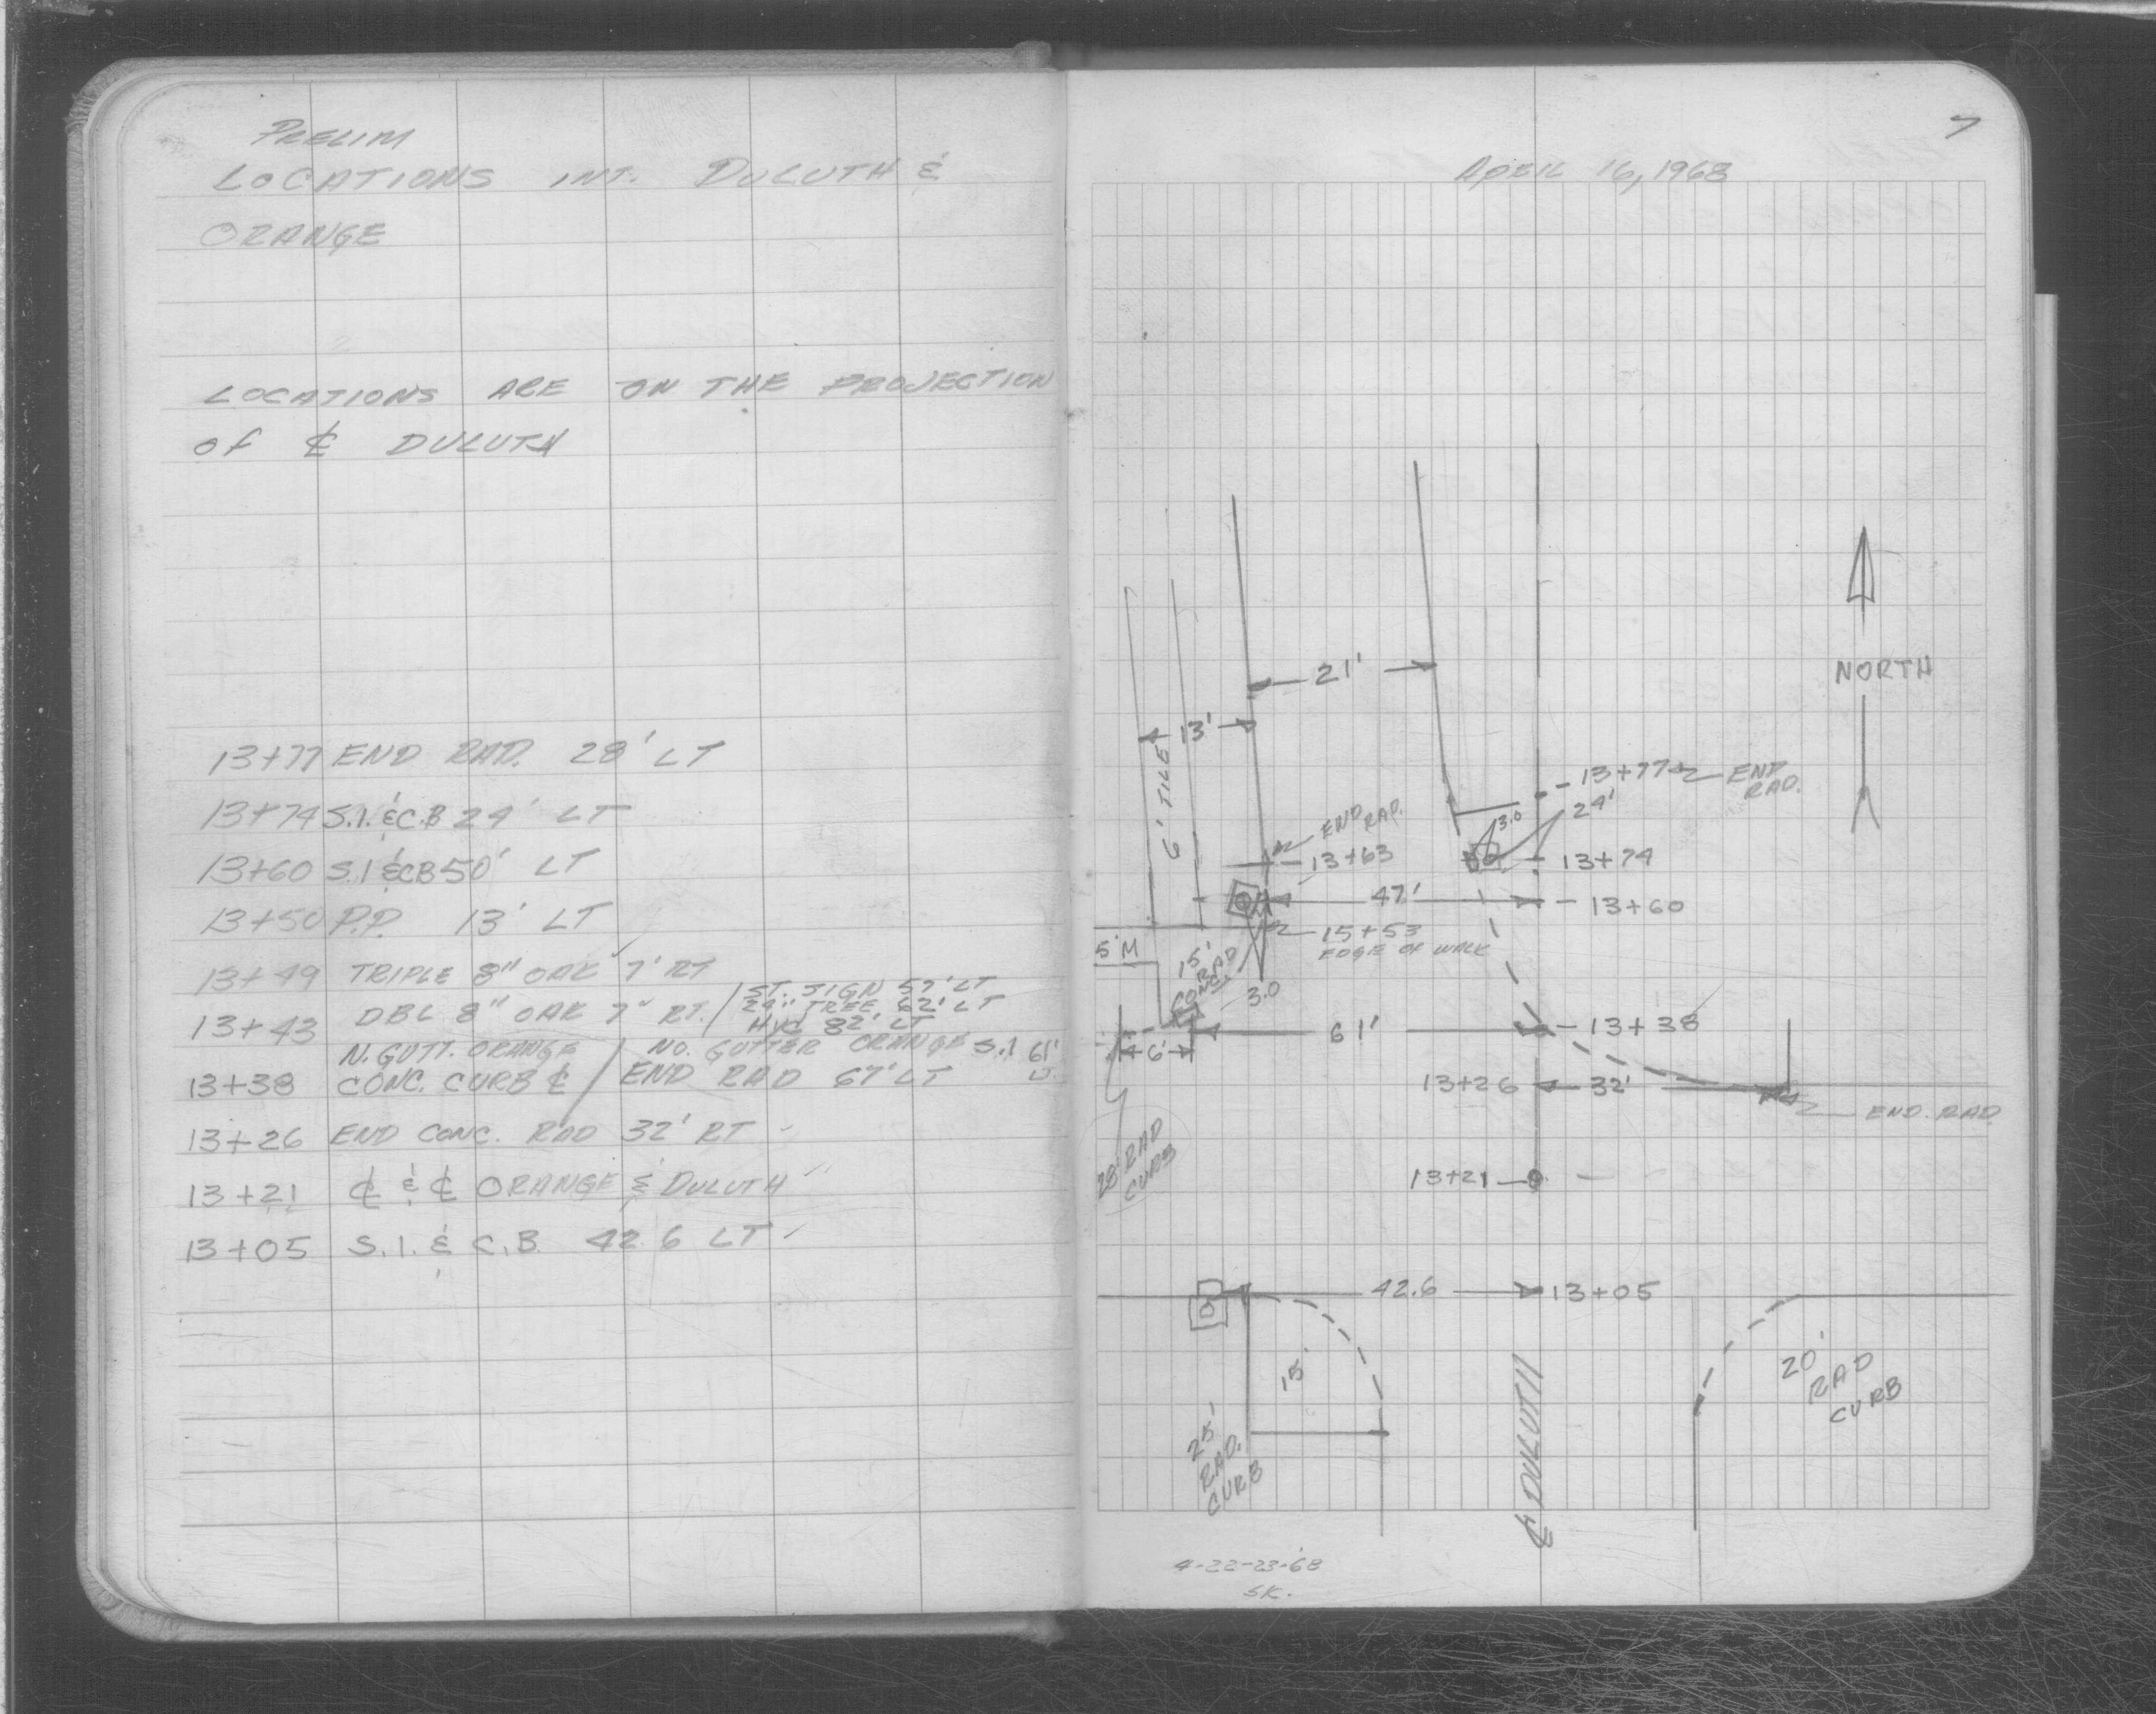 PRELIM
LOCATIONS INT. DULUTH &
ORANGE
LOCATIONS ARE ON THE PROJECTION
of ℄ DULUTH
13+77 END RAD. 28' LT
13+74 S.I. & C.B 24' LT
13+60 S.I & CB 50' LT
13+50 P.P. 13' LT
13+49 TRIPLE 8" OAK 7' RT
ST. SIGN 57' LT
13+43 DBL 8" OAK 7" RT. / 24" TREE 62' LT
HYD 82' LT
N. GUTT. ORANGE / NO. GUTTER ORANGE S.I 61'
13+38 CONC. CURB ℄ / END RAD 67' LT
13+26 END CONC. RAD 32' RT
13+21 ℄ & ℄ ORANGE & DULUTH
13+05 S.I. & C.B 42.6 LT
7
APRIL 16, 1968
21'
13'
6' TILE
NORTH
13+77
END
RAD.
24'
3.0
END
RAD.
13+63
13+74
47'
13+60
15+53
EDGE OF WALK
5'
15'
RAD
CONC
3.0
61'
13+38
6'
13+26
32'
END. RAD
28' RAD
CURB
13+21
42.6
13+05
15'
25'
RAD.
CURB
℄ DULUTH
20'
RAD
CURB
4-22-23-68
SK.